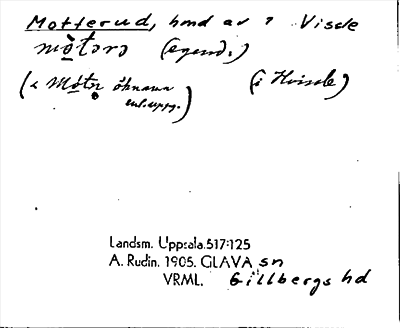 Motterud, hmd av ? Viscle
mòtərə (egend.)
(< Motər öknamn (i Hvissle)
enl. uppg.)
Landsm. Uppsala.517:125
A. Rudin. 1905. GLAVA sn
VRML. Gillbergs hd